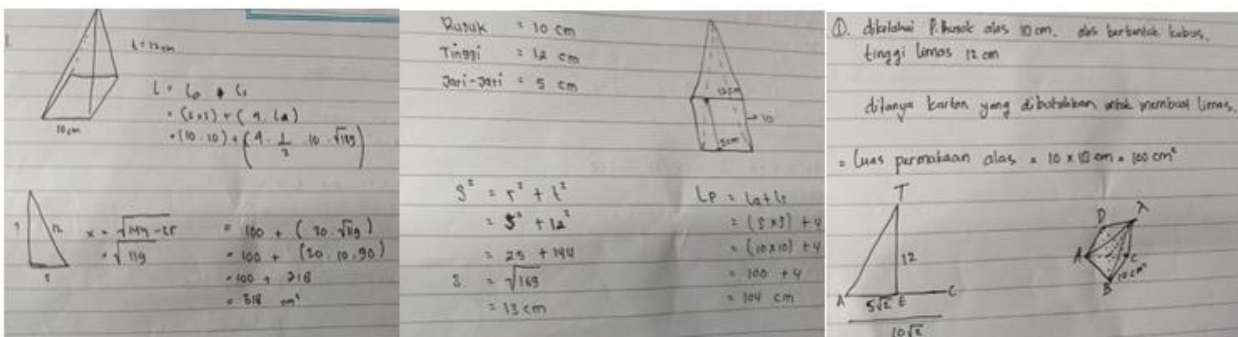 1.
t = 12 cm
10 cm
L = La + Ls
= (s x s) + (4. La)
= (10.10) + (4. 1/2 .10 .√119)
?
12
5
x = √144-25
= √119
= 100 + (20.√119)
= 100 + (20.10,90)
= 100 + 218
= 318 cm²
Rusuk = 10 cm
Tinggi = 12 cm
Jari-Jari = 5 cm
12cm
10
5cm
S² = r² + t²
= 5² + 12²
= 25 + 144
S = √169
= 13 cm
Lp = La+Ls
= (s x s) + 4
= (10x10) + 4
= 100 + 4
= 104 cm
①. diketahui P. Rusuk alas 10 cm, alas berbentuk kubus,
tinggi limas 12 cm
ditanya karton yang dibutuhkan untuk membuat limas.
= Luas permukaan alas = 10 x 10 cm = 100 cm²
T
12
A
5√2
E
C
10√2
D
A
C
B
10 cm²